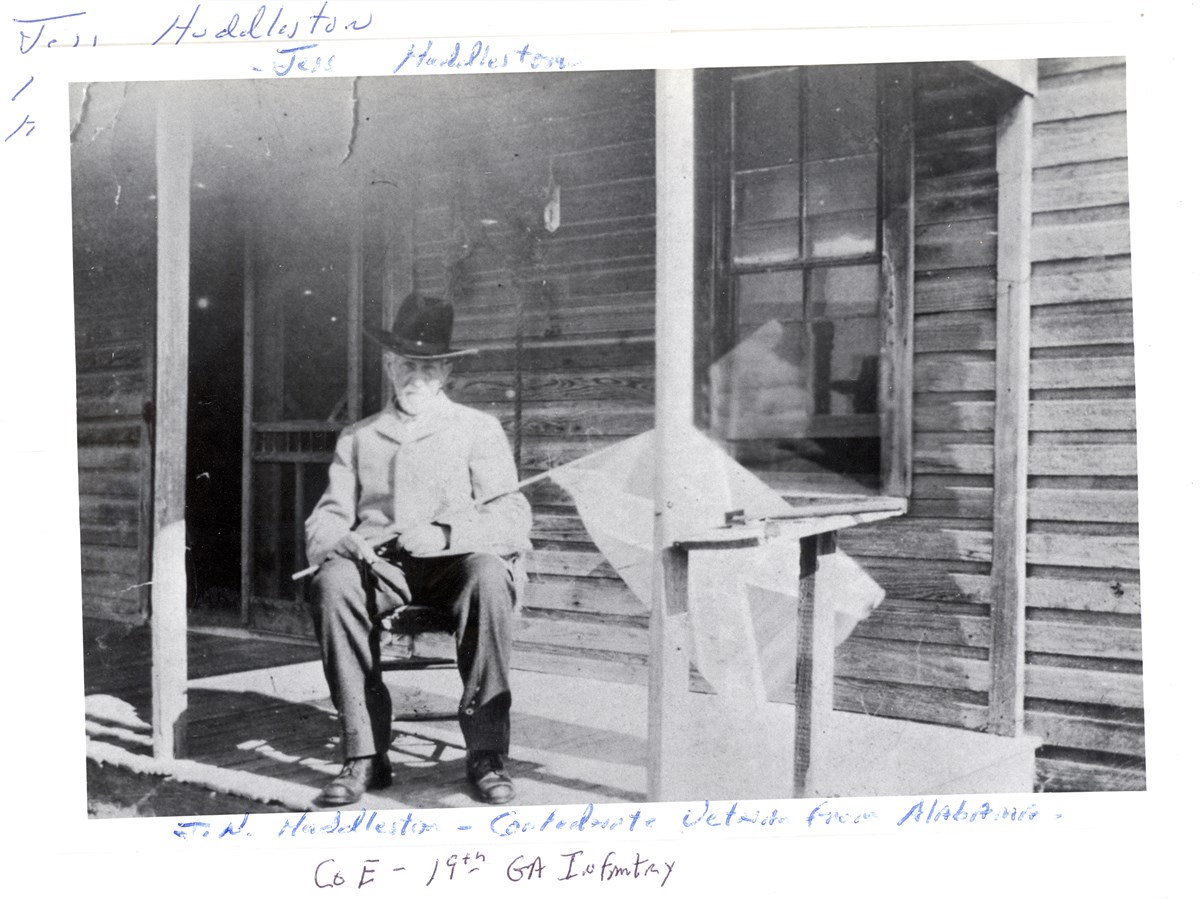 Jess Huddleston
- Jess Huddleston
J. N. Huddleston - Confederate Veteran from Alabama.
Co E - 19th GA Infantry